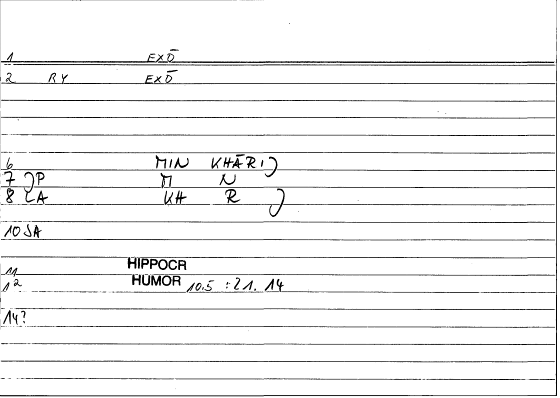 1 EXŌ
2 RY EXŌ
6 MIN KHĀRIJ
7 JP M N
8 LA KH R J
10 JA
11 HIPPOCR
12 HUMOR 10.5 :21.14
14?